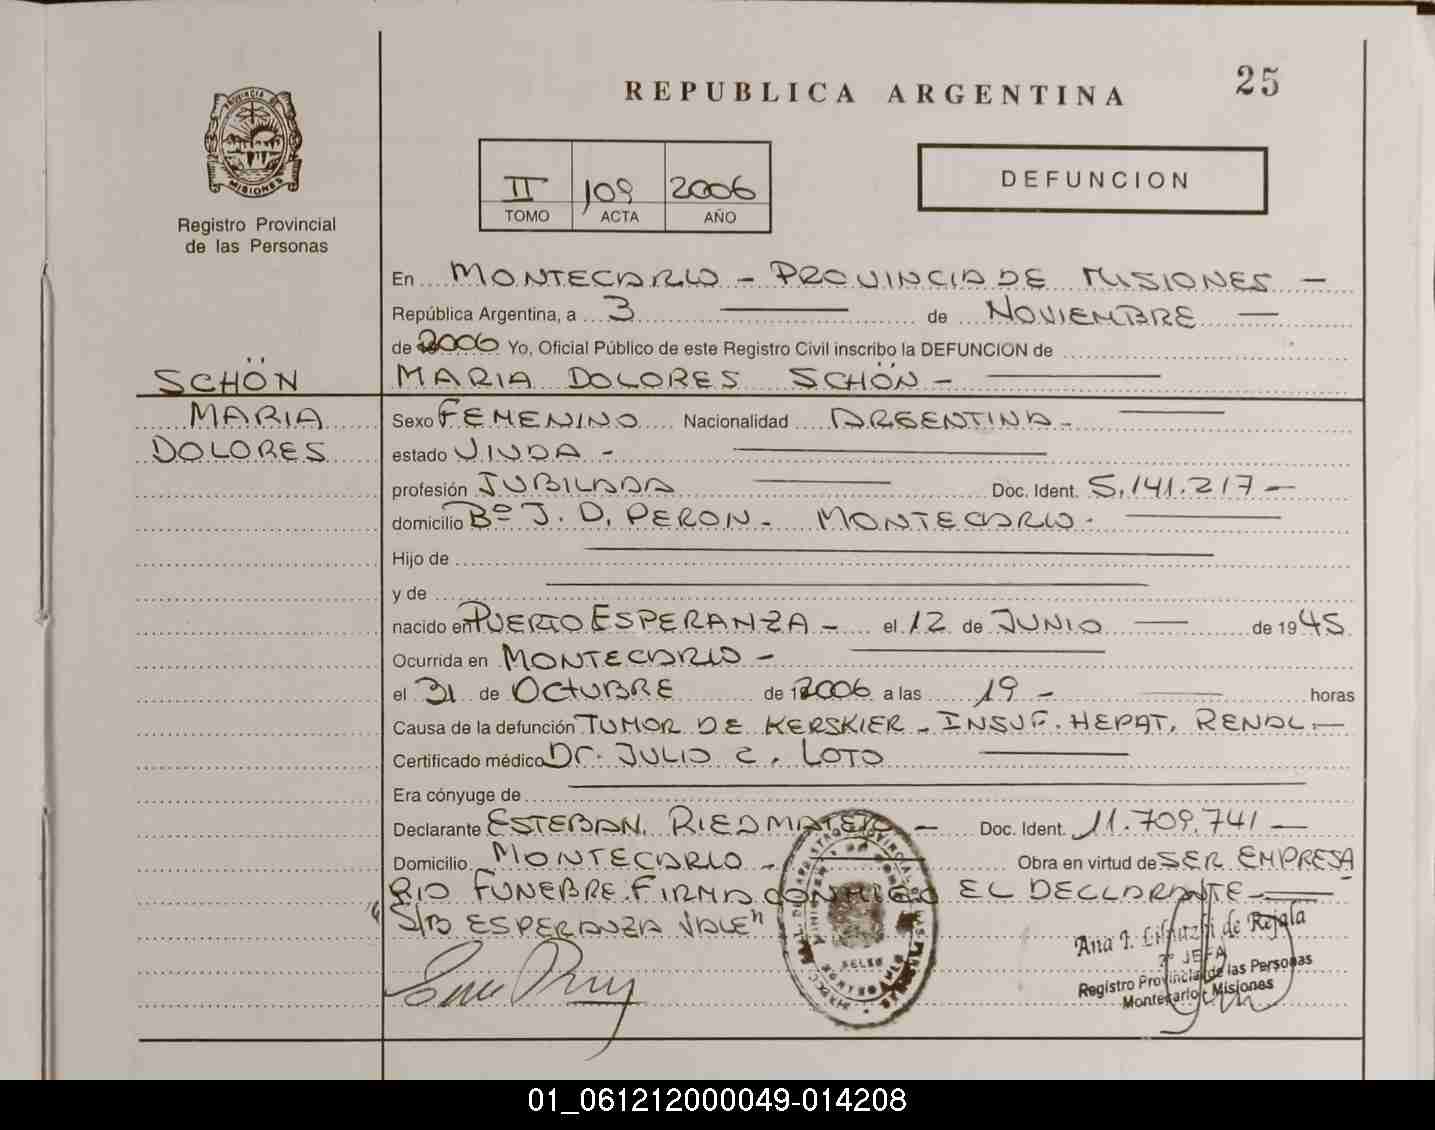 25
REPUBLICA ARGENTINA
PROVINCIA DE
MISIONES
Registro Provincial
de las Personas
II 109 2006
TOMO ACTA AÑO
DEFUNCION
En MONTECARLO - PROVINCIA DE MISIONES -
República Argentina, a 3 de NOVIEMBRE
de 2006 Yo, Oficial Público de este Registro Civil inscribo la DEFUNCION de
SCHÖN
MARIA DOLORES SCHÖN -
MARIA
DOLORES
Sexo FEMENINO Nacionalidad ARGENTINA -
estado VIUDA -
profesión JUBILADA Doc. Ident. 5.141.217 -
domicilio Bº J. D. PERON - MONTECARLO -
Hijo de
y de
nacido en PUERTO ESPERANZA - el 12 de JUNIO de 1945
Ocurrida en MONTECARLO -
el 31 de OCTUBRE de 2006 a las 19 - horas
Causa de la defunción TUMOR DE KERSKIER - INSUF. HEPAT. RENAL -
Certificado médico Dr. JULIO C. LOTO
Era cónyuge de
Declarante ESTEBAN RIEDMATER - Doc. Ident. 11.709.741 -
Domicilio MONTECARLO - Obra en virtud de SER EMPRESA
RIO FUNEBRE. FIRMA CONMIGO EL DECLARANTE -
"S/B ESPERANZA VALE"
Ana I. de Rejala
3º JEFA
Registro Provincial de las Personas
Montecarlo - Misiones
01_061212000049-014208